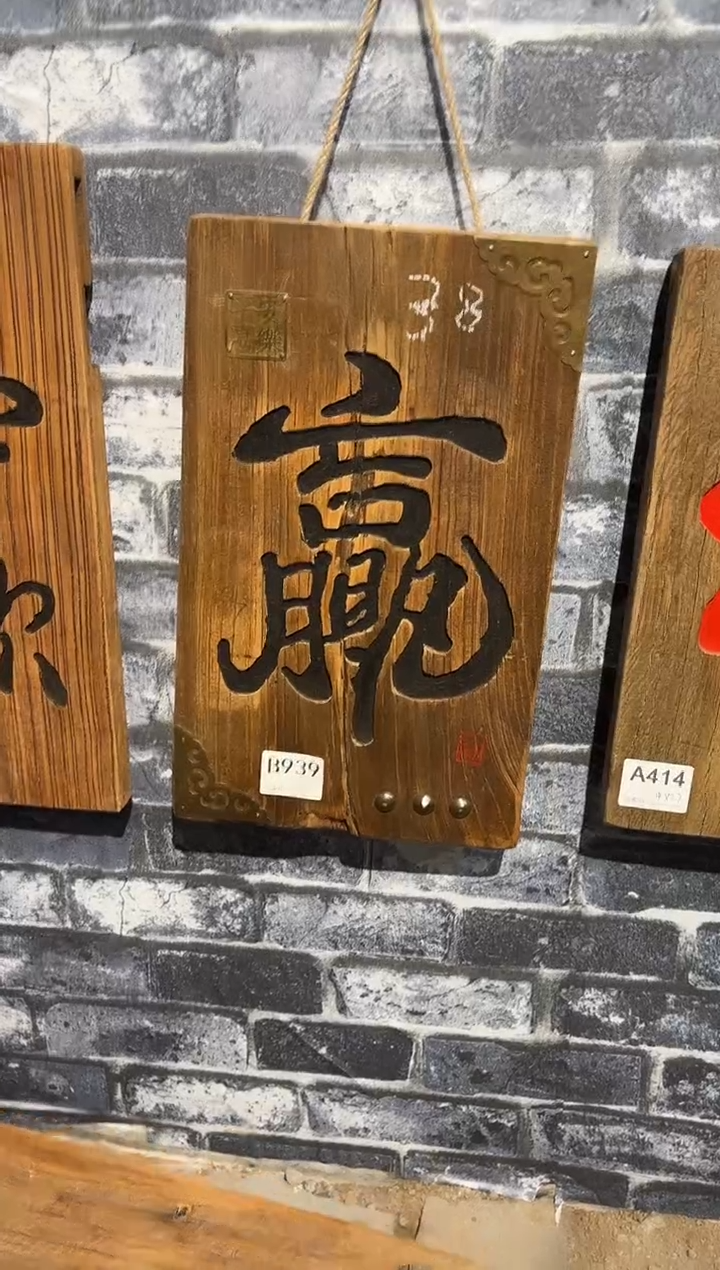 38
赢
B939
A414